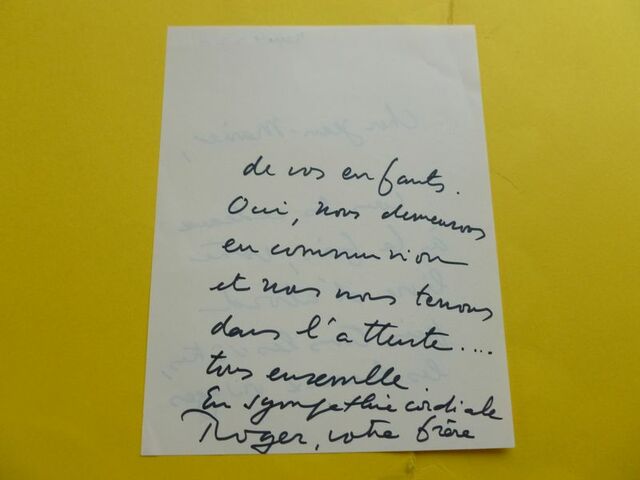 de vos enfants.
Oui, nous demeurons
en communion
et nous nous tenons
dans l'attente....
tous ensemble.
En sympathie cordiale
Roger, votre frère
Cher Jean-Marie,